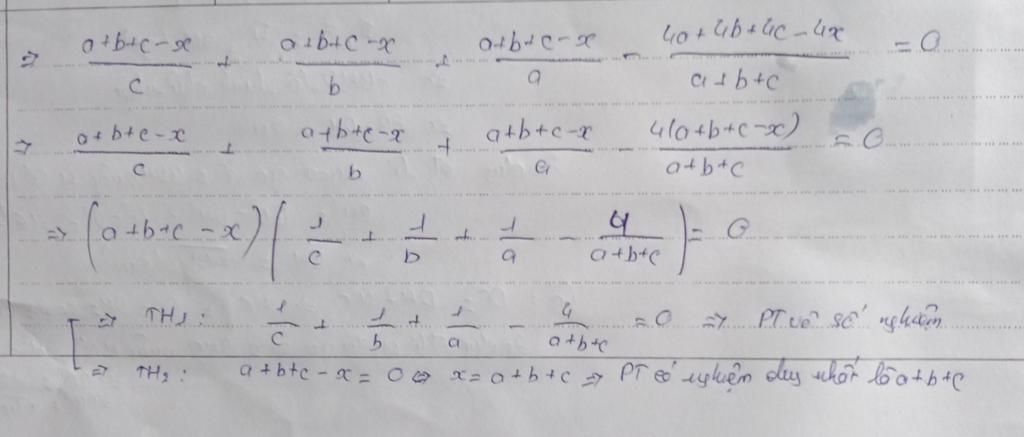 ⇒ (a+b+c-x)/c + (a+b+c-x)/b + (a+b+c-x)/a - (4a+4b+4c-4x)/(a+b+c) = 0
⇒ (a+b+c-x)/c + (a+b+c-x)/b + (a+b+c-x)/a - 4(a+b+c-x)/(a+b+c) = 0
⇒ (a+b+c-x)(1/c + 1/b + 1/a - 4/(a+b+c)) = 0
⇒ TH1: 1/c + 1/b + 1/a - 4/(a+b+c) = 0 ⇒ PT vô số nghiệm
⇒ TH2: a+b+c-x = 0 ⇔ x = a+b+c ⇒ PT có nghiệm duy nhất là a+b+c